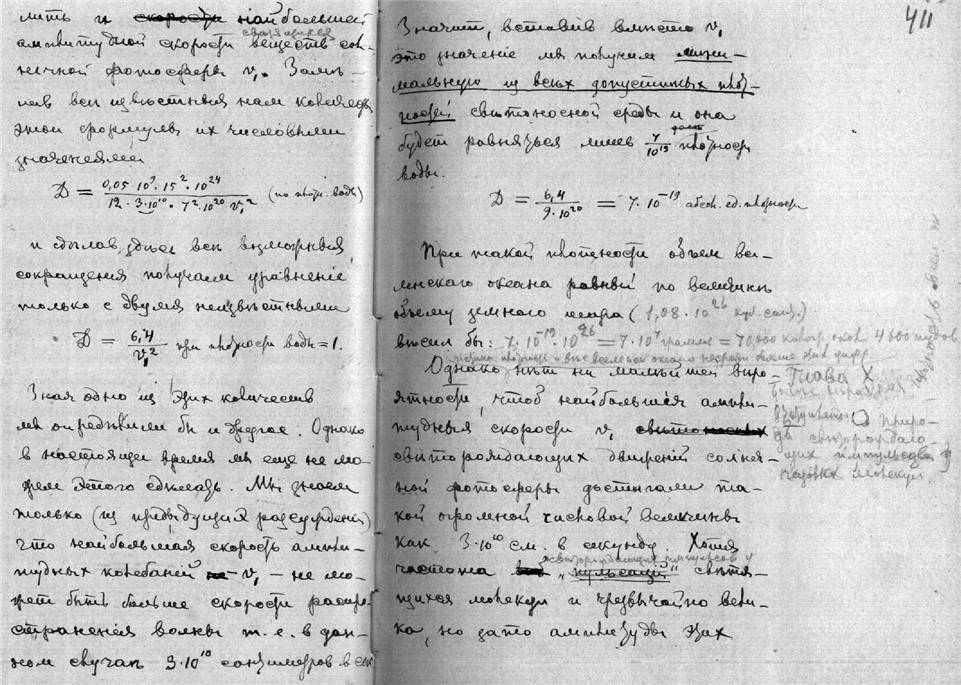 лить и скорости наибольшей
амплитудной скорости веществ сол-
нечной фотосферы v₁. Замѣ-
нив всѣ извѣстныя нам
этой формулы их числовыми
значениями
Д = 0,05·10⁹·15²·10²⁴ / 12·3·10¹⁰·7²·10²⁰ v₁² (по плотн. воды)
и сдѣлав здѣсь всѣ возможныя
сокращения получаем уравненіе
только с двумя неизвѣстными
Д = 6,4 / v₁² при плотности воды = 1.
Зная одно из этих количеств
мы опредѣлили бы и другое. Однако
в настоящее время мы еще не мо-
жем этого сдѣлать. Мы знаем
только (из предыдущих разсуждений)
что наибольшая скорость ампли-
тудных колебаний v₁ – не мо-
жет быть больше скорости распро-
странения волны т.е. в дан-
ном случаѣ 3·10¹⁰ сантиметров в сек
411
Значит, вставив вмѣсто v₁
это значение мы получим мини-
мальную из всѣх допустимых плот-
ностей свѣтоносной среды и она
будет равняться лишь 7/10¹⁹ плотности
воды.
Д = 6,4 / 9·10²⁰ = 7·10⁻¹⁹ абсол. ед. плотности
При такой плотности объем все-
ленского океана равный по величинѣ
объему земного шара (1,08·10²⁶ куб. сант.)
вѣсил бы: 7·10⁻¹⁹·10²⁶ = 7·10⁷ грамм = 70,000 килогр. окол. 4600 пудов
Однако нѣт ни малѣйшей вѣро-
ятности, чтоб наибольшія ампли-
тудныя скорости v₁
свѣторождающих движений солнеч-
ной фотосферы достигали та-
кой огромной числовой величины
как 3·10¹⁰ см. в секунду. Хотя
частота „пульсаций" свѣтя-
щихся молекул и чрезвычайно вели-
ка, но зато амплитуды этих
Глава X
О приро-
дѣ свѣторождаю-
щих импульсов
молекул